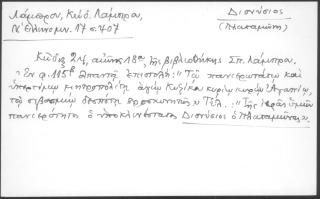 Λάμπρου, Κώδ. Λάμπρου,
Ν. Ἑλληνομν. 17 σ. 407
Διονύσιος
(Πλαταμῶνος)
Κῶδιξ 24, αἰῶνος 18ου, τῆς βιβλιοθήκης Σπ. Λάμπρου.
Ἐν φ. 115β ἀπαντᾷ ἐπιστολή: "Τῷ πανιερωτάτῳ καὶ
ὑπερτίμῳ μητροπολίτῃ ἁγίῳ Κυζίκου κυρίῳ κυρίῳ Ἀγαπίῳ,
τῷ σεβασμίῳ δεσπότῃ προσκυνητῶς". Τέλ. "Τῆς ὑμῶν
πανιερότητος ὁ ὑποκλινέστατος Διονύσιος ὁ Πλαταμῶνος".